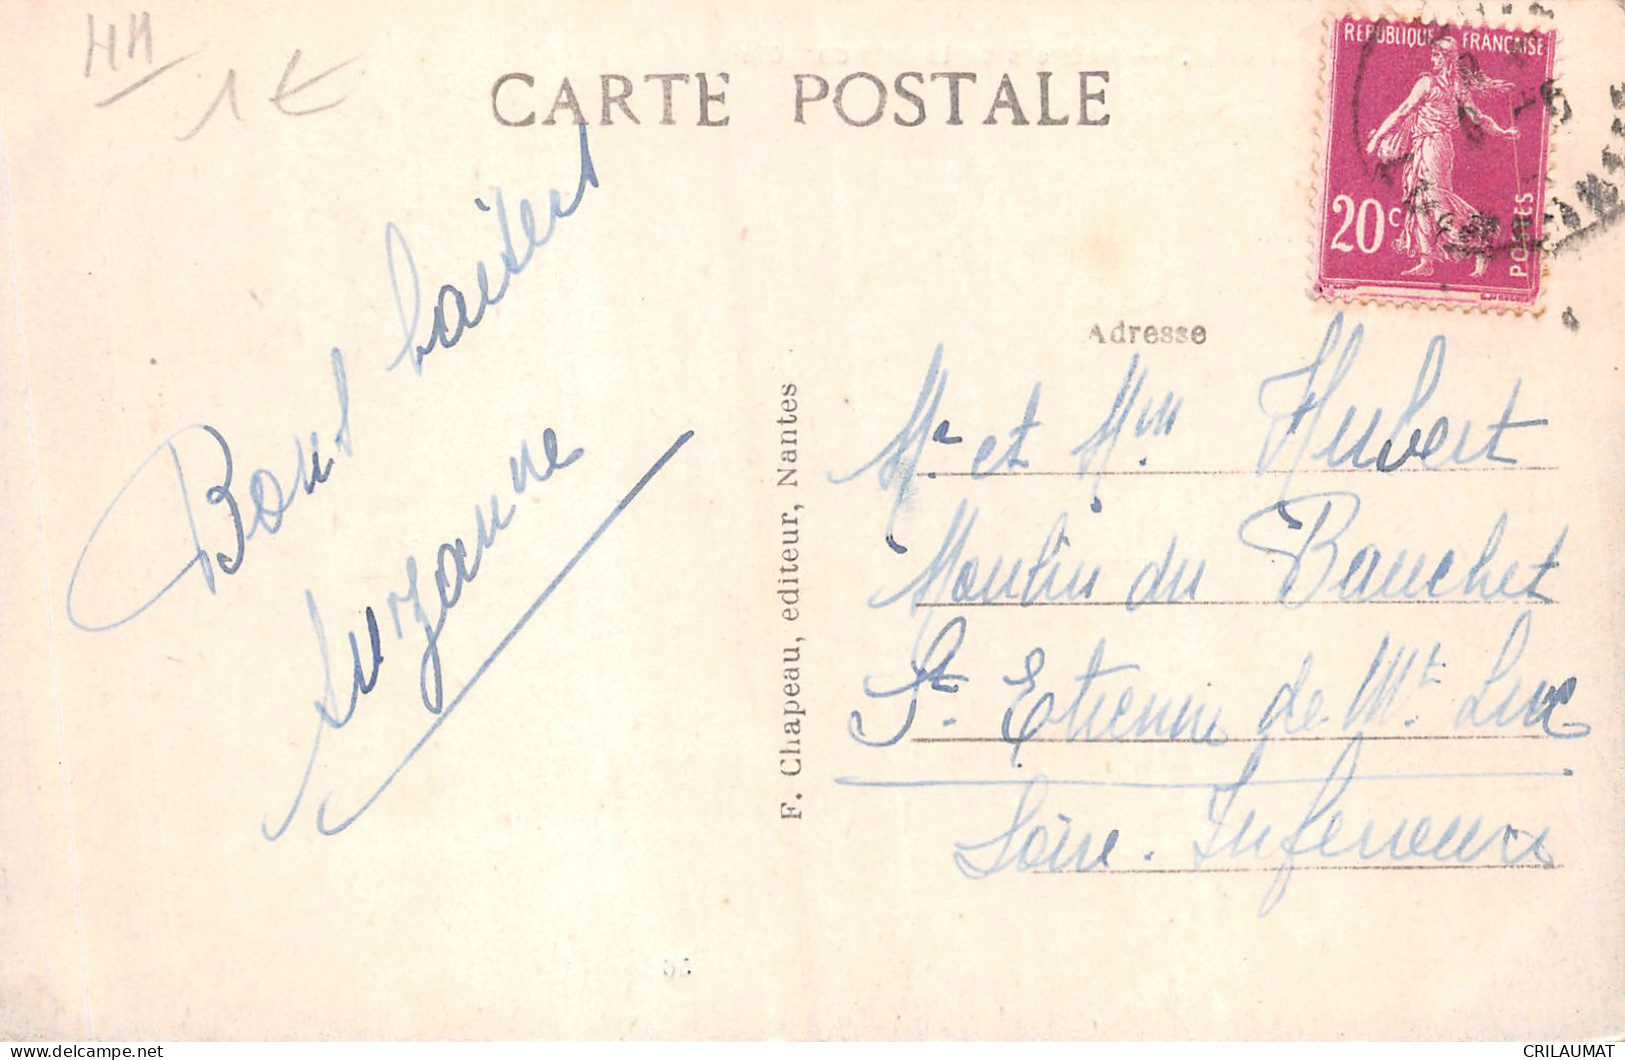 HH
1€
CARTE POSTALE
REPUBLIQUE FRANÇAISE
20c
POSTES
Bons baisers
Suzanne
F. Chapeau, editeur, Nantes
Adresse
Mr et Mme Hubert
Moulin du Bauchet
St. Etienne de Mt. Luc
Loire-Inférieure
delcampe.net
CRILAUMAT